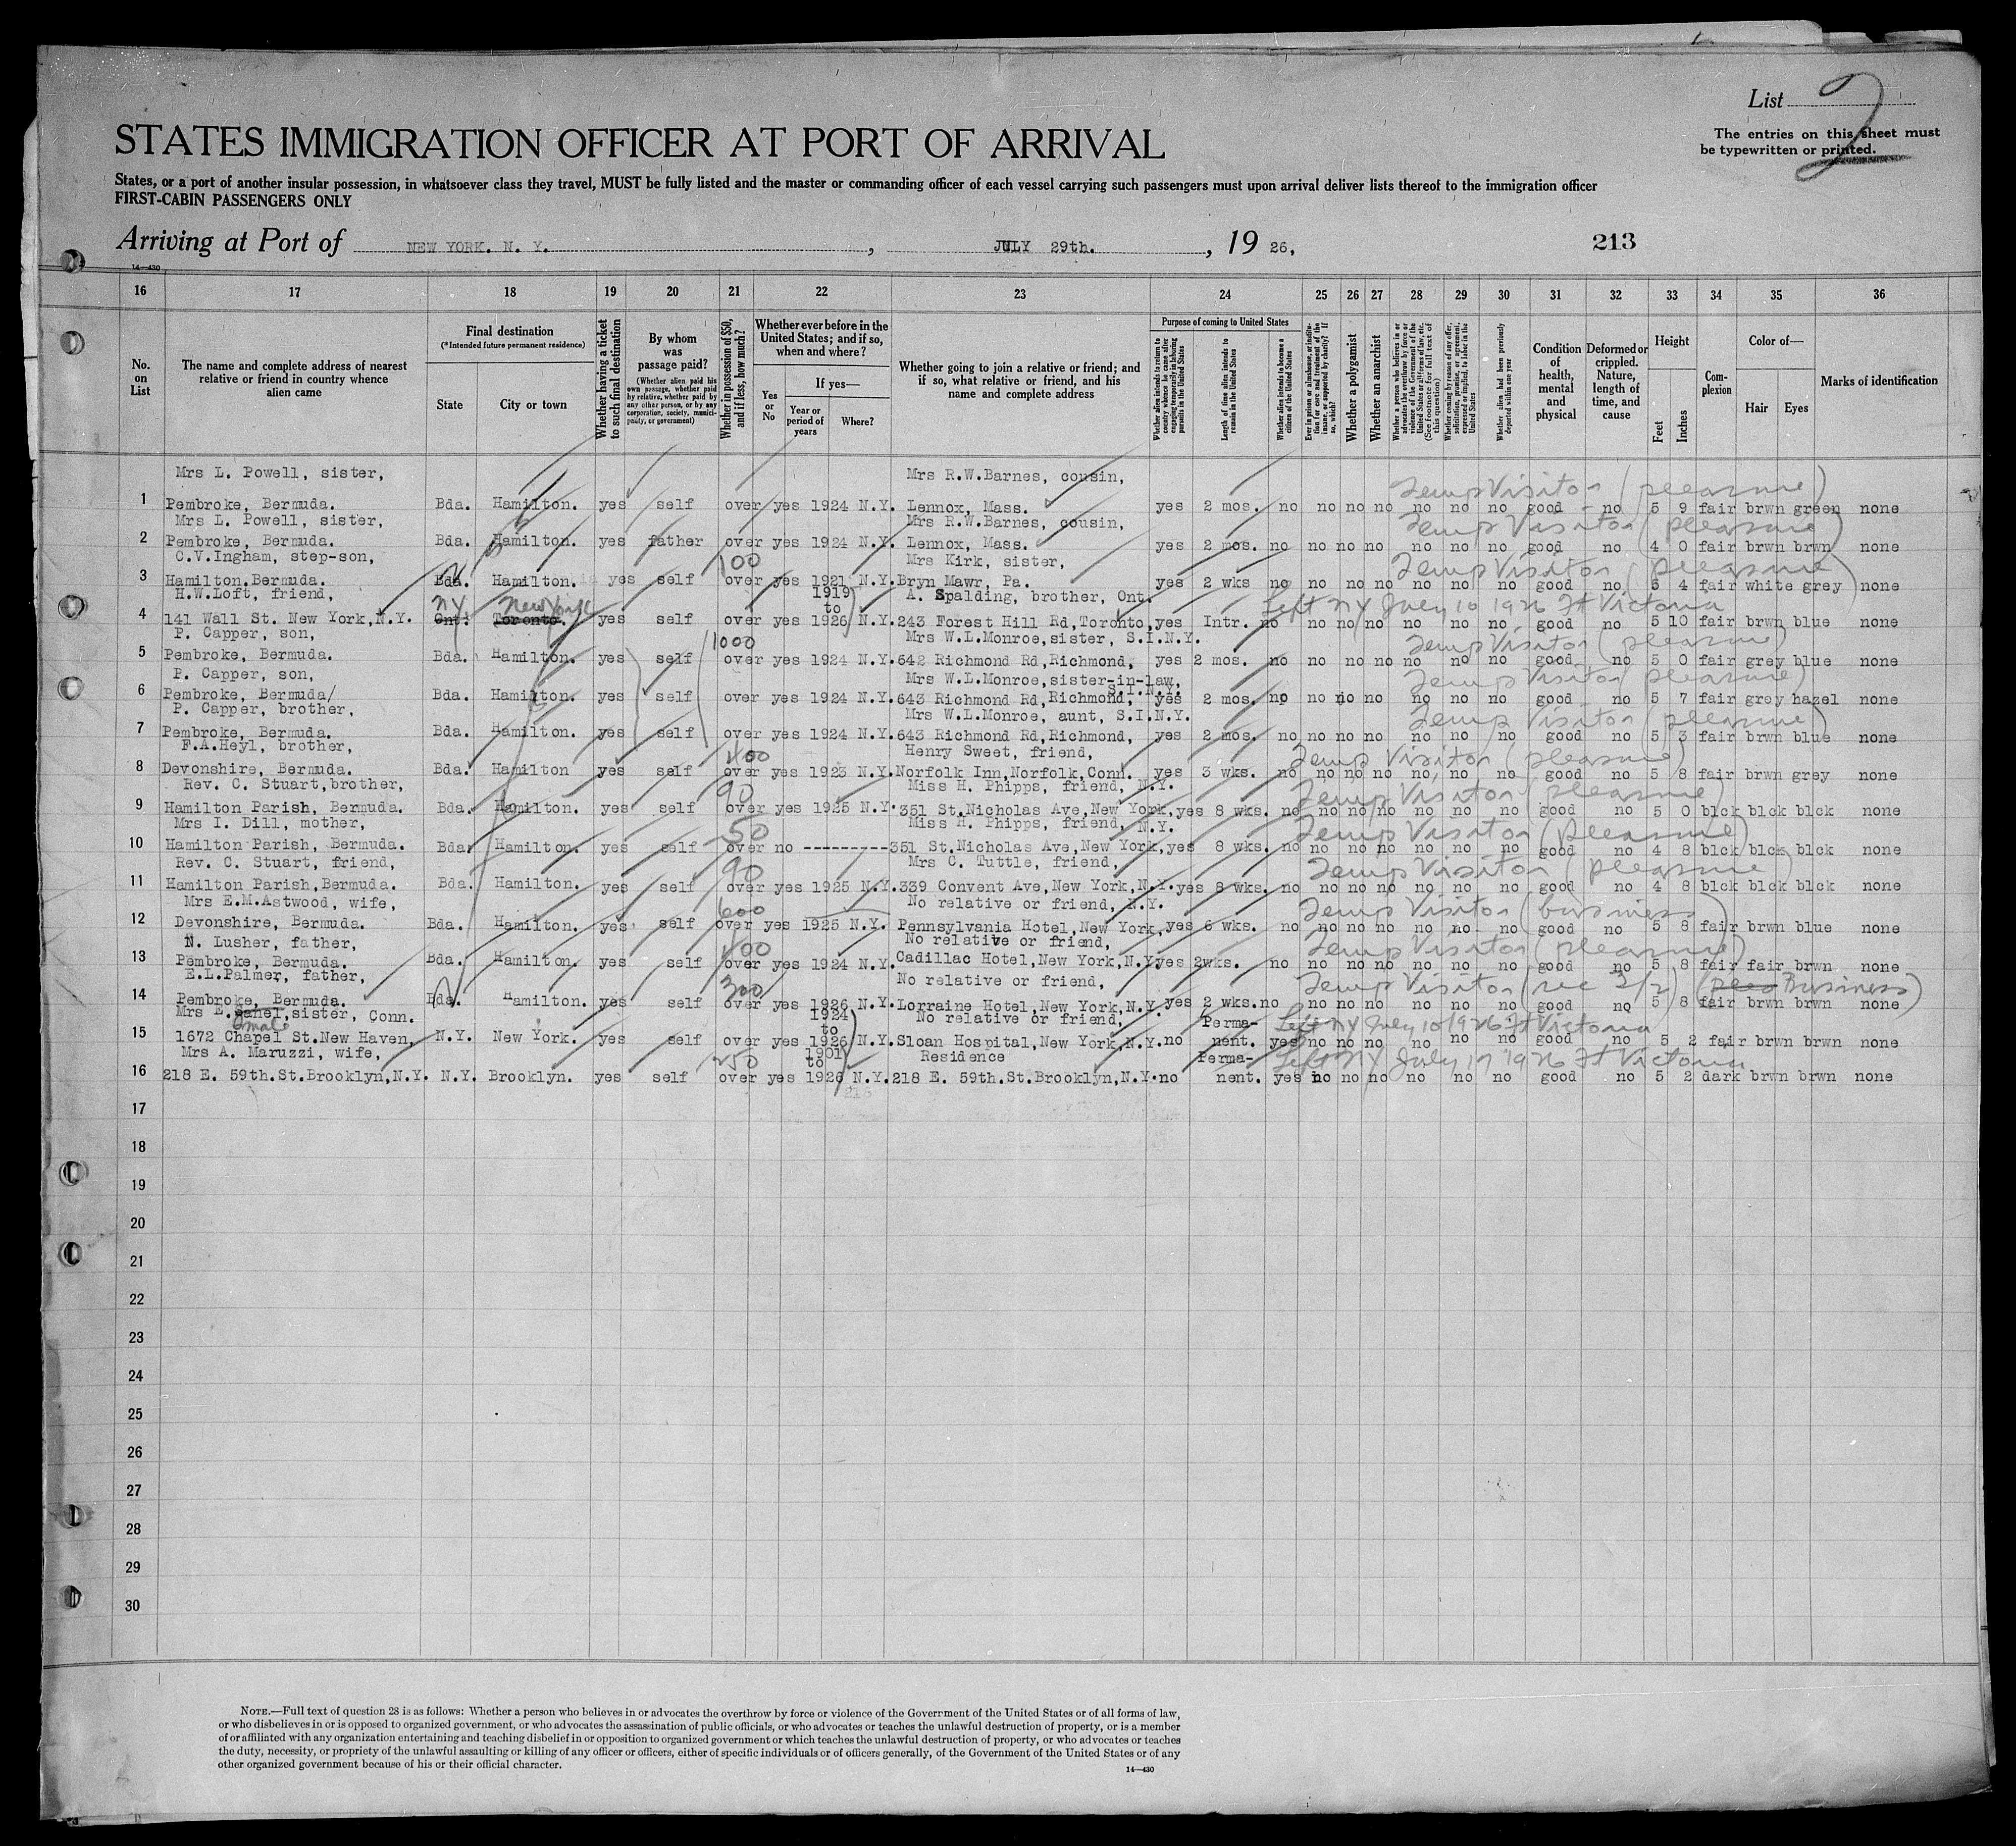 List 2
The entries on this sheet must
be typewritten or printed.
STATES IMMIGRATION OFFICER AT PORT OF ARRIVAL
States, or a port of another insular possession, in whatsoever class they travel, MUST be fully listed and the master or commanding officer of each vessel carrying such passengers must upon arrival deliver lists thereof to the immigration officer
FIRST-CABIN PASSENGERS ONLY
Arriving at Port of NEW YORK. N. Y. , JULY 29th. , 19 26, 213
14—430
16 17 18 19 20 21 22 23 24 25 26 27 28 29 30 31 32 33 34 35 36
No. on List
The name and complete address of nearest relative or friend in country whence alien came
Final destination
(*Intended future permanent residence)
State
City or town
Whether having a ticket to such final destination
By whom was passage paid?
(Whether alien paid his own passage, whether paid by relative, whether paid by any other person, or by any corporation, society, municipality, or government)
Whether in possession of $50, and if less, how much?
Whether ever before in the United States; and if so, when and where?
Yes or No
If yes—
Year or period of years
Where?
Whether going to join a relative or friend; and if so, what relative or friend, and his name and complete address
Purpose of coming to United States
Whether alien intends to return to country whence he came after engaging temporarily in laboring pursuits in the United States
Length of time alien intends to remain in the United States
Whether alien intends to become a citizen of the United States
Ever in prison or almshouse, or institution for care and treatment of the insane, or supported by charity? If so, which?
Whether a polygamist
Whether an anarchist
Whether a person who believes in or advocates the overthrow by force or violence of the Government of the United States or all forms of law, etc. (See footnote for full text of this question)
Whether coming by reason of any offer, solicitation, promise, or agreement, expressed or implied, to labor in the United States
Whether alien had been previously deported within one year
Condition of health, mental and physical
Deformed or crippled. Nature, length of time, and cause
Height
Feet
Inches
Complexion
Color of—
Hair
Eyes
Marks of identification
Mrs L. Powell, sister, Mrs R.W.Barnes, cousin, Temp Visitor (pleasure)
1 Pembroke, Bermuda. Bda. Hamilton. yes self over yes 1924 N.Y. Lennox, Mass. yes 2 mos. no no no no no no no good no 5 9 fair brwn green none
Mrs L. Powell, sister, Mrs R.W.Barnes, cousin, Temp Visitor (pleasure)
2 Pembroke, Bermuda. Bda. Hamilton. yes father over yes 1924 N.Y. Lennox, Mass. yes 2 mos. no no no no no no no good no 4 0 fair brwn brwn none
C.V.Ingham, step-son, 100 Mrs Kirk, sister, Temp Visitor (pleasure)
3 Hamilton.Bermuda. Bda. Hamilton. yes self over yes 1921 N.Y. Bryn Mawr, Pa. yes 2 wks no no no no no no no good no 5 4 fair white grey none
H.W.Loft, friend, NY New York 1919 to A. Spalding, brother, Ont. Left NY July 10 1926 Ft Victoria
4 141 Wall St. New York,N.Y. Ont. Toronto. yes self over yes 1926 N.Y. 243 Forest Hill Rd,Toronto, yes Intr. no no no no no no no good no 5 10 fair brwn blue none
P. Capper, son, 1000 Mrs W.L.Monroe,sister, S.I.N.Y. Temp Visitor (pleasure)
5 Pembroke, Bermuda. Bda. Hamilton. yes self over yes 1924 N.Y. 642 Richmond Rd,Richmond, yes 2 mos. no no no no no no no good no 5 0 fair grey blue none
P. Capper, son, Mrs W.L.Monroe,sister-in-law, S.I.N.Y. Temp Visitor (pleasure)
6 Pembroke, Bermuda/ Bda. Hamilton. yes self over yes 1924 N.Y. 643 Richmond Rd,Richmond, yes 2 mos. no no no no no no no good no 5 7 fair grey hazel none
P. Capper, brother, Mrs W.L.Monroe, aunt, S.I.N.Y. Temp Visitor (pleasure)
7 Pembroke, Bermuda. Bda. Hamilton. yes self over yes 1924 N.Y. 643 Richmond Rd,Richmond, yes 2 mos. no no no no no no no good no 5 3 fair brwn blue none
F.A.Heyl, brother, 400 Henry Sweet, friend, Temp Visitor (pleasure)
8 Devonshire, Bermuda. Bda. Hamilton yes self over yes 1923 N.Y. Norfolk Inn,Norfolk,Conn. yes 3 wks. no no no no no no no good no 5 8 fair brwn grey none
Rev. C. Stuart,brother, 90 Miss H. Phipps, friend, N.Y. Temp Visitor (pleasure)
9 Hamilton Parish, Bermuda. Bda. Hamilton. yes self over yes 1925 N.Y. 351 St.Nicholas Ave,New York, yes 8 wks. no no no no no no no good no 5 0 blck blck blck none
Mrs I. Dill, mother, 50 Miss H. Phipps, friend, N.Y. Temp Visitor (pleasure)
10 Hamilton Parish, Bermuda. Bda. Hamilton. yes self over no --------- 351 St.Nicholas Ave,New York, yes 8 wks. no no no no no no no good no 4 8 blck blck blck none
Rev. C. Stuart, friend, 90 Mrs C. Tuttle, friend, Temp Visitor (pleasure)
11 Hamilton Parish,Bermuda. Bda. Hamilton. yes self over yes 1925 N.Y. 339 Convent Ave,New York,N.Y. yes 8 wks. no no no no no no no good no 4 8 blck blck blck none
Mrs E.M.Astwood, wife, 600 No relative or friend, N.Y. Temp Visitor (business)
12 Devonshire, Bermuda. Bda. Hamilton. yes self over yes 1925 N.Y. Pennsylvania Hotel,New York, yes 6 wks. no no no no no no no good no 5 8 fair brwn blue none
N. Lusher, father, 400 No relative or friend, Temp Visitor (pleasure)
13 Pembroke, Bermuda. Bda. Hamilton. yes self over yes 1924 N.Y. Cadillac Hotel,New York,N.Y. yes 2wks. no no no no no no no good no 5 8 fair fair brwn none
E.L.Palmer, father, 300 No relative or friend, Temp Visitor (sec 3/2) (plea Business)
14 Pembroke, Bermuda. Bda. Hamilton. yes self over yes 1926 N.Y. Lorraine Hotel,New York,N.Y. yes 2 wks. no no no no no no no good no 5 8 fair brwn brwn none
Mrs E. sister, Conn. 1924 to No relative or friend, Perma- Left NY July 10 1926 Ft Victoria
15 1672 Chapel St.New Haven, N.Y. New York. yes self over yes 1926 N.Y. Sloan Hospital,New York,N.Y. no nent. yes no no no no no no good no 5 2 fair brwn brwn none
Mrs A. Maruzzi, wife, 250 1901 to Residence Perma- Left NY July 17 1926 Ft Victoria
16 218 E. 59th.St.Brooklyn,N.Y. N.Y. Brooklyn. yes self over yes 1926 N.Y. 218 E. 59th.St.Brooklyn,N.Y. no nent. yes no no no no no no good no 5 2 dark brwn brwn none
17
18
19
20
21
22
23
24
25
26
27
28
29
30
NOTE.—Full text of question 28 is as follows: Whether a person who believes in or advocates the overthrow by force or violence of the Government of the United States or of all forms of law,
or who disbelieves in or is opposed to organized government, or who advocates the assassination of public officials, or who advocates or teaches the unlawful destruction of property, or is a member
of or affiliated with any organization entertaining and teaching disbelief in or opposition to organized government or which teaches the unlawful destruction of property, or who advocates or teaches
the duty, necessity, or propriety of the unlawful assaulting or killing of any officer or officers, either of specific individuals or of officers generally, of the Government of the United States or of any
other organized government because of his or their official character.
14—430